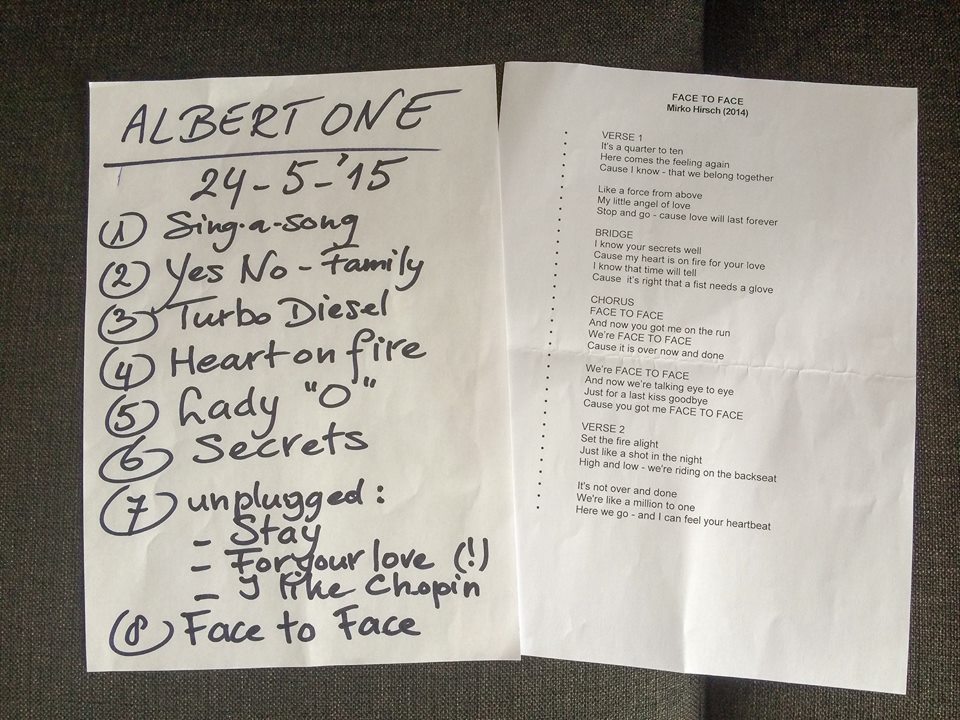 ALBERT ONE
24-5-'15
1 Sing-a-song
2 Yes No - Family
3 Turbo Diesel
4 Heart on fire
5 Lady "O"
6 Secrets
7 unplugged:
- Stay
- For your love (!)
- I like Chopin
8 Face to Face
FACE TO FACE
Mirko Hirsch (2014)
VERSE 1
It's a quarter to ten
Here comes the feeling again
Cause I know - that we belong together
Like a force from above
My little angel of love
Stop and go - cause love will last forever
BRIDGE
I know your secrets well
Cause my heart is on fire for your love
I know that time will tell
Cause it's right that a fist needs a glove
CHORUS
FACE TO FACE
And now you got me on the run
We're FACE TO FACE
Cause it is over now and done
We're FACE TO FACE
And now we're talking eye to eye
Just for a last kiss goodbye
Cause you got me FACE TO FACE
VERSE 2
Set the fire alight
Just like a shot in the night
High and low - we're riding on the backseat
It's not over and done
We're like a million to one
Here we go - and I can feel your heartbeat